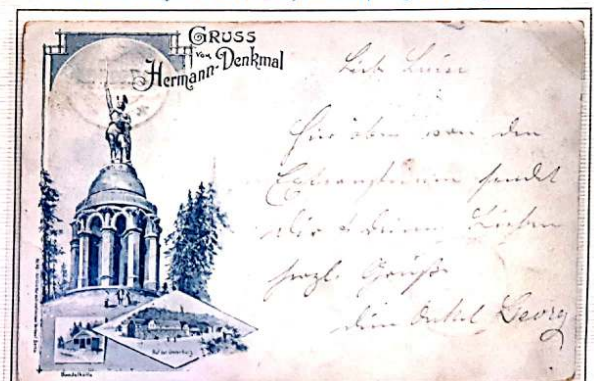 GRUSS
vom
Hermann-Denkmal
Lieb Luise
Hier oben von den
Externsteinen sendet
dir & deinen Lieben
herzl. Grüße
dein Onkel Georg
Bandelhütte